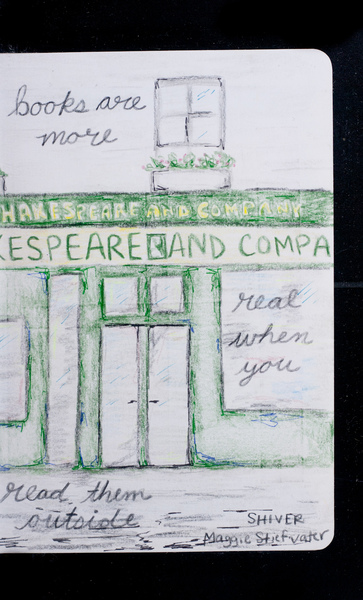 books are
more
SHAKESPEARE AND COMPANY
KESPEARE AND COMPA
real
when
you
read them
outside
SHIVER
Maggie Stiefvater